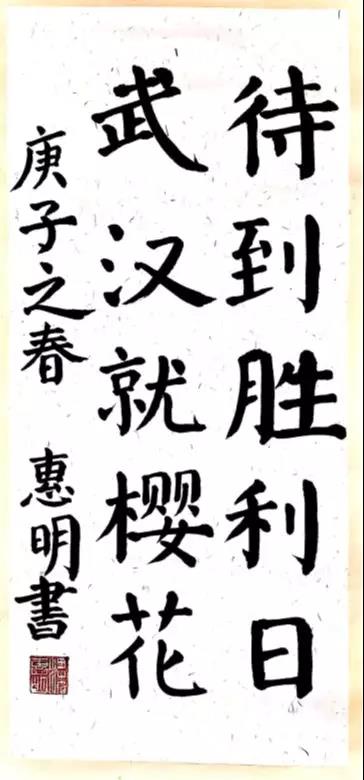 待到胜利日
武汉就樱花
庚子之春 惠明書